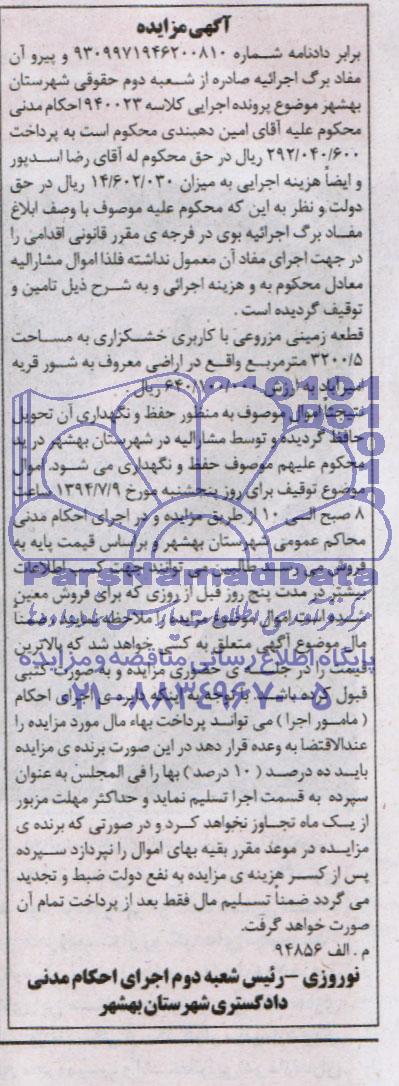 آگهی مزایده
برابر دادنامه شماره ۹۳۰۹۹۷۱۹۴۶۲۰۰۸۱۰ و پیرو آن
مفاد برگ اجرائیه صادره از شعبه دوم حقوقی شهرستان
بهشهر موضوع پرونده اجرایی کلاسه ۹۴۰۰۲۳ احکام مدنی
محکوم علیه آقای امین دهبندی محکوم است به پرداخت
۲۹۲/۰۴۰/۶۰۰ ریال در حق محکوم له آقای رضا اسدپور
و ایضاً هزینه اجرایی به میزان ۱۴/۶۰۲/۰۳۰ ریال در حق
دولت و نظر به این که محکوم علیه موصوف با وصف ابلاغ
مفاد برگ اجرائیه بوی در فرجه ی مقرر قانونی اقدامی را
در جهت اجرای مفاد آن معمول نداشته فلذا اموال مشارالیه
معادل محکوم به و هزینه اجرائی و به شرح ذیل تامین و
توقیف گردیده است .
قطعه زمینی مزروعی با کاربری خشکزاری به مساحت
۳۲۰۰/۵ مترمربع واقع در اراضی معروف به شور قریه
امیرآباد به ارزش ۶۴۰/۱۰۰/۰۰۰ ریال
نتیجتاً اموال موصوف به منظور حفظ و نگهداری آن تحویل
حافظ گردیده و توسط مشارالیه در شهرستان بهشهر در ید
محکوم علیهم موصوف حفظ و نگهداری می شود. اموال
موضوع توقیف برای روز پنجشنبه مورخ ۱۳۹۴/۷/۹ ساعت
۸ صبح الی ۱۰ از طریق مزایده و در اجرای احکام مدنی
محاکم عمومی شهرستان بهشهر و براساس قیمت پایه به
فروش می رسد طالبین می توانند جهت کسب اطلاعات
بیشتر در مدت پنج روز قبل از روزی که برای فروش معین
شده است اموال موضوع مزایده را ملاحظه نمایند و ضمناً
مال موضوع آگهی متعلق به کسی خواهد شد که بالاترین
قیمت را در جلسه ی حضوری مزایده و به صورت کتبی
قبول کرده باشد. با توجه به اینکه دادورز اجرای احکام
( مامور اجرا ) می تواند پرداخت بهاء مال مورد مزایده را
عندالاقتضا به وعده قرار دهد در این صورت برنده ی مزایده
باید ده درصد ( ۱۰ درصد ) بها را فی المجلس به عنوان
سپرده به قسمت اجرا تسلیم نماید و حداکثر مهلت مزبور
از یک ماه تجاوز نخواهد کرد و در صورتی که برنده ی
مزایده در موعد مقرر بقیه بهای اموال را نپردازد سپرده
پس از کسر هزینه ی مزایده به نفع دولت ضبط و تجدید
می گردد ضمناً تسلیم مال فقط بعد از پرداخت تمام آن
صورت خواهد گرفت.
م . الف ۹۴۸۵۶
نوروزی – رئیس شعبه دوم اجرای احکام مدنی
دادگستری شهرستان بهشهر
ParsNamadData
پایگاه اطلاع رسانی مناقصه و مزایده
۰۲۱-۸۸۳۴۹۶۷۰-۵